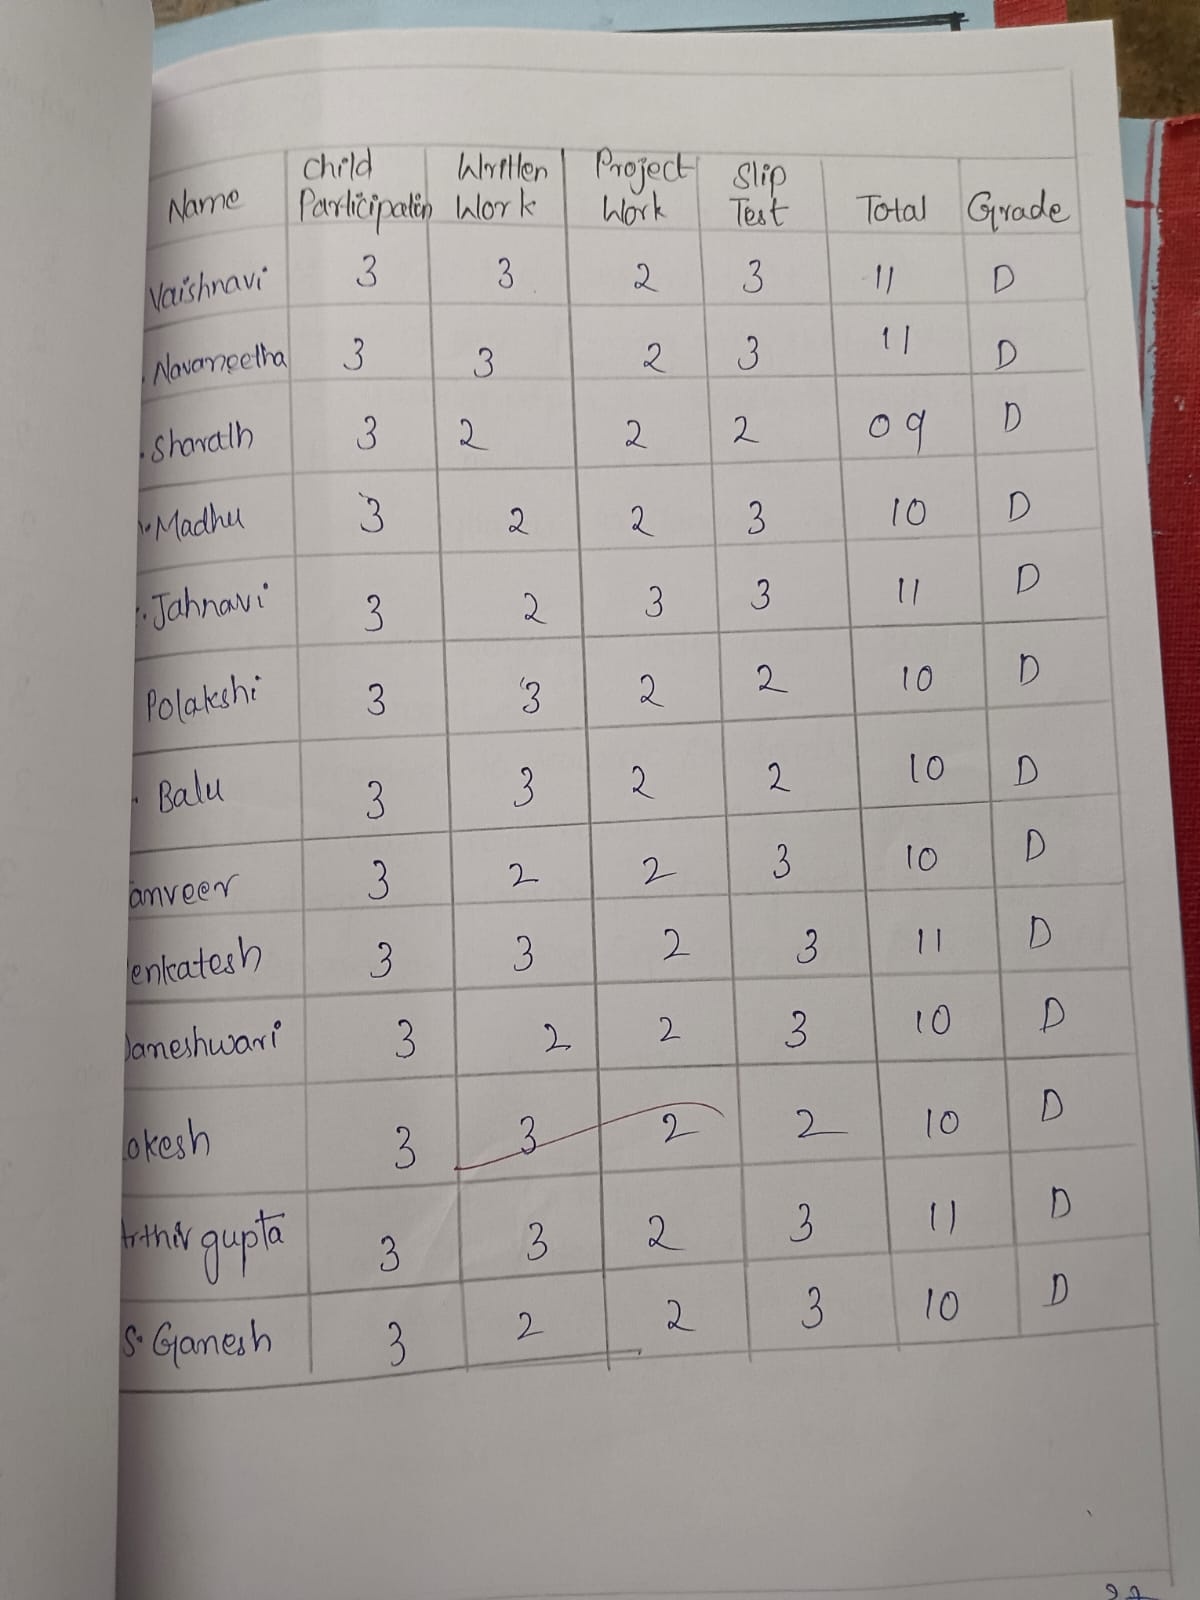 Name Child Participation Written Work Project Work Slip Test Total Grade
Vaishnavi 3 3 2 3 11 D
Navaneetha 3 3 2 3 11 D
Sharath 3 2 2 2 09 D
Madhu 3 2 2 3 10 D
Jahnavi 3 2 3 3 11 D
Polakshi 3 3 2 2 10 D
Balu 3 3 2 2 10 D
anveer 3 2 2 3 10 D
enkatesh 3 3 2 3 11 D
aneshwari 3 2 2 3 10 D
okesh 3 3 2 2 10 D
gupta 3 3 2 3 11 D
S. Ganesh 3 2 2 3 10 D